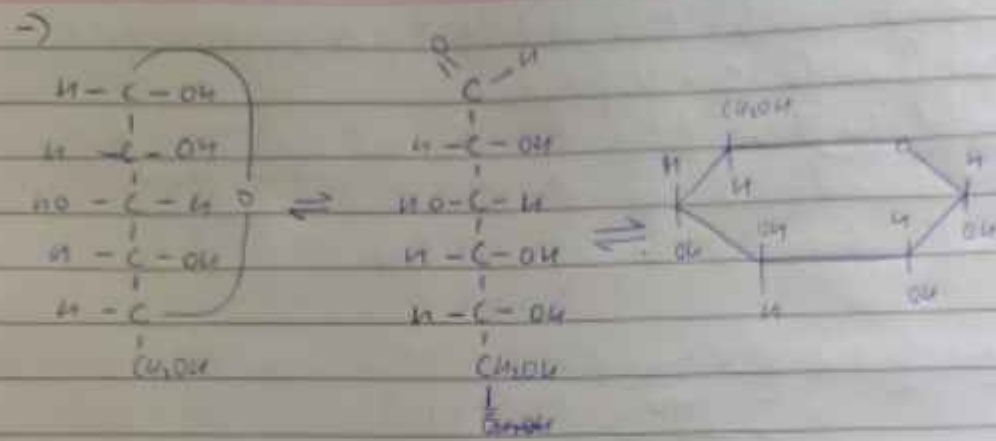 →)
H - C - OH
H - C - OH
HO - C - H O
H - C - OH
H - C
CH₂OH
⇌
O H
C
H - C - OH
HO - C - H
H - C - OH
H - C - OH
CH₂OH
⇌
CH₂OH
O
H H
H
OH H
OH OH
H OH